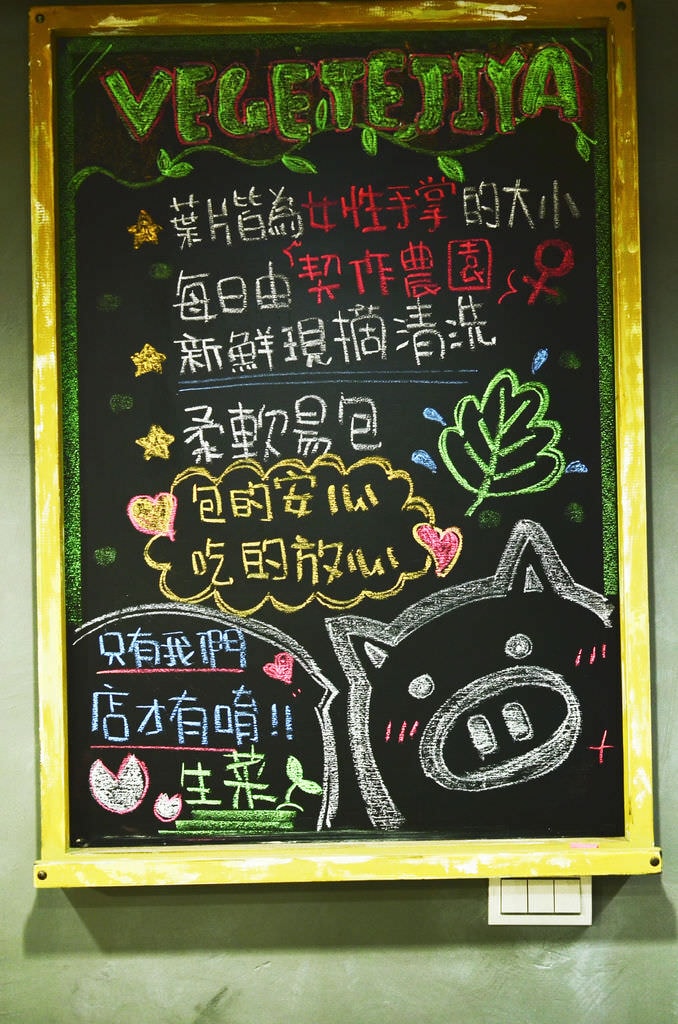 VEGETEJIYA
葉片皆為女性手掌的大小
每日由契作農園
新鮮現摘清洗
柔軟易包
包的安心
吃的放心
只有我們
店才有唷!!
生菜